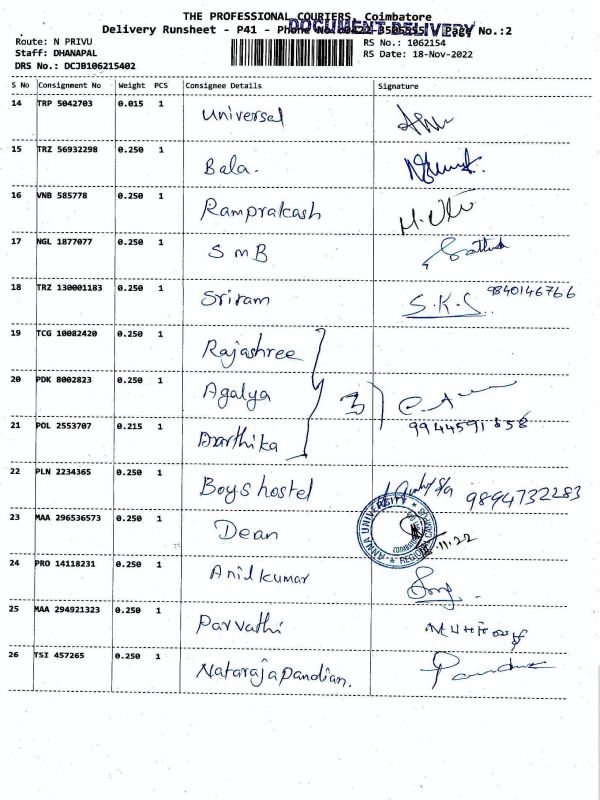 THE PROFESSIONAL COURIERS, Coimbatore
DOCUMENT DELIVERY
Delivery Runsheet - P41 - Phone No. Page No.:2
Route: N PRIVU
RS No.: 1062154
Staff: DHANAPAL
RS Date: 18-Nov-2022
DRS No.: DCJB106215402
S No Consignment No Weight PCS Consignee Details Signature
14 TRP 5042703 0.015 1 Universal
15 TRZ 56932298 0.250 1 Bala.
16 VNB 585778 0.250 1 Ramprakash
17 NGL 1877077 0.250 1 SMB
18 TRZ 130001183 0.250 1 Sriram S.K.S 9840146766
19 TCG 10082420 0.250 1 Rajashree
20 PDK 8002823 0.250 1 Agalya 3
21 POL 2553707 0.215 1 Aarthika 9944591858
22 PLN 2234365 0.250 1 Boys hostel 9894732283
23 MAA 296536573 0.250 1 Dean
ANNA UNIVERSITY
11.22
24 PRO 14118231 0.250 1 Anil kumar
25 MAA 294921323 0.250 1 Parvathi
26 TSI 457265 0.250 1 Natarajapandian.